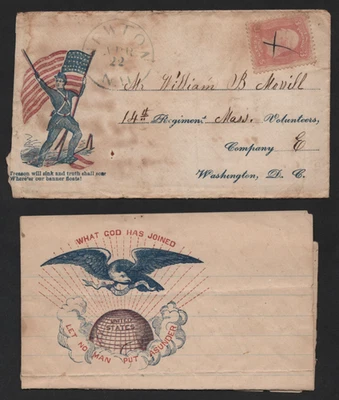 NEWTON
22
Mr William B Morill
14th Regiment, Mass. Volunteers,
Company E
Washington, D. C.
Treason will sink and truth shall soar
Where'er our banner floats!
WHAT GOD HAS JOINED
UNITED
STATES
LET NO MAN PUT ASUNDER